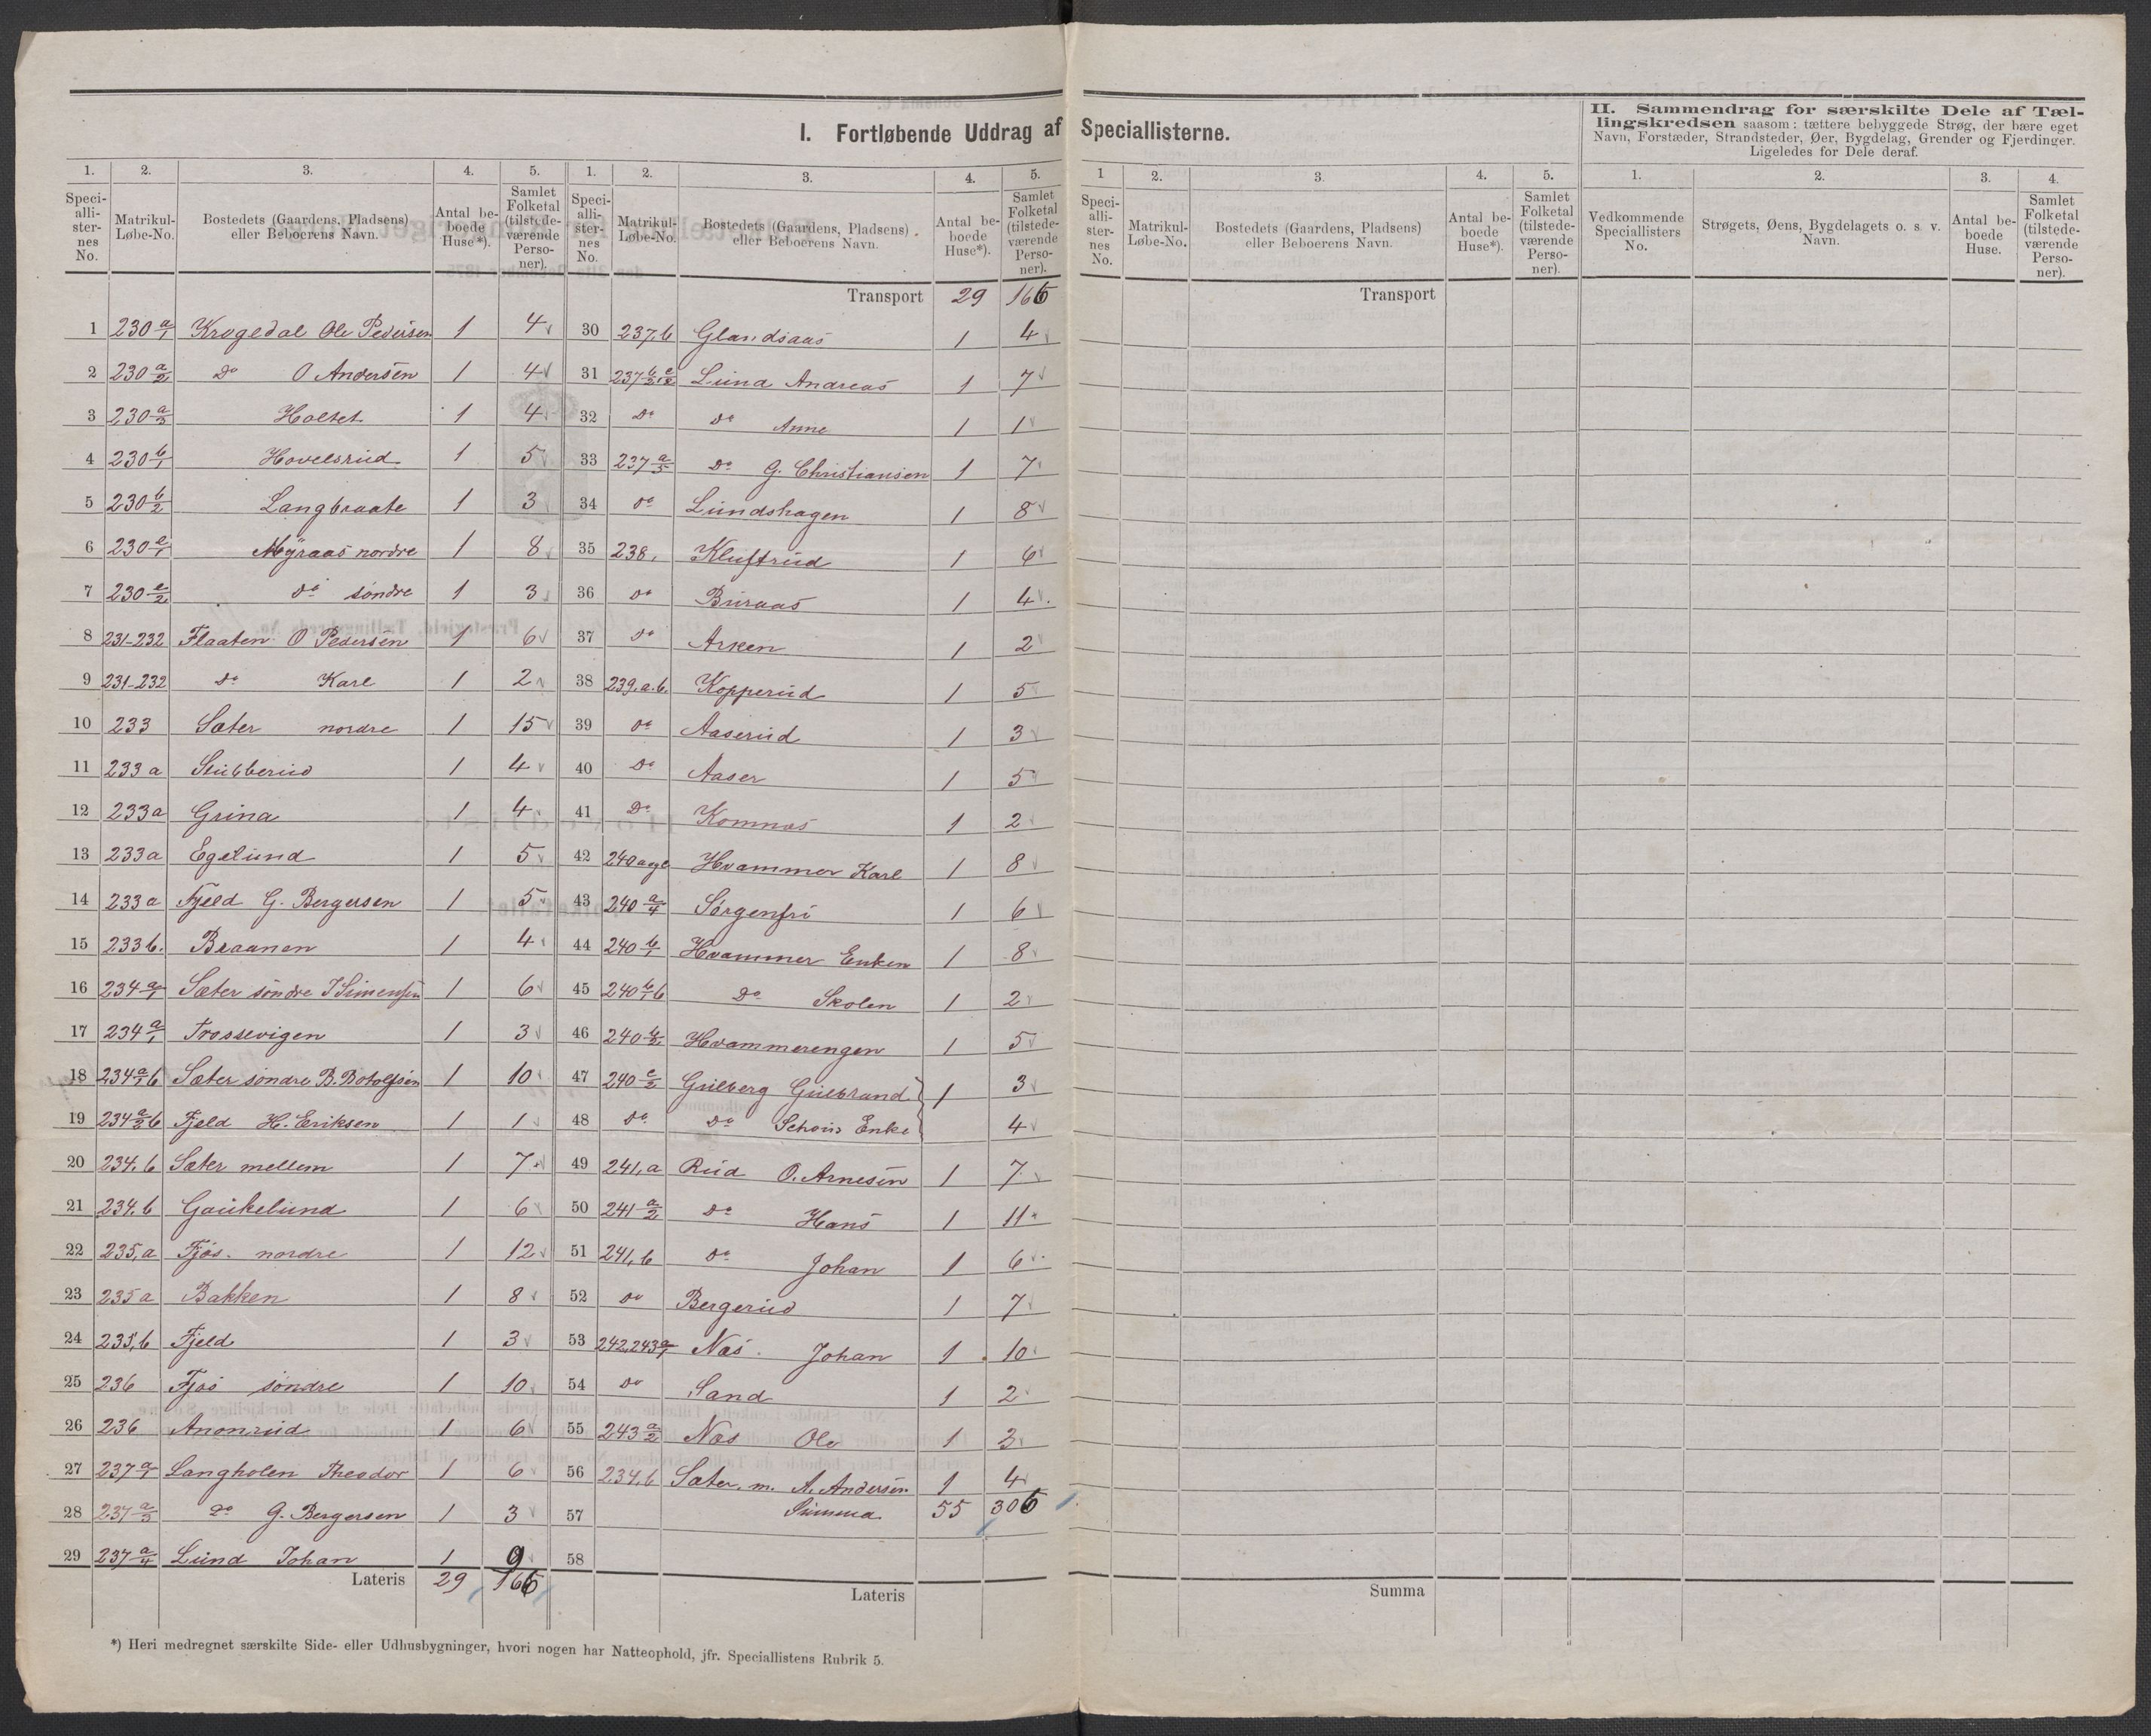 I. Fortløbende Uddrag af Speciallisterne.
II. Sammendrag for særskilte Dele af Tæl-
lingskredsen saasom: tættere bebyggede Strøg, der bære eget
Navn, Forstæder, Strandsteder, Øer, Bygdelag, Grender og Fjerdinger.
Ligeledes for Dele deraf.
1. 2. 3. 4. 5.
Speci-alli-ster-nes No. Matrikul-Løbe-No. Bostedets (Gaardens, Pladsens) eller Beboerens Navn. Antal be-boede Huse*). Samlet Folketal (tilstede-værende Perso-ner).
1 230 a/1 Krogedal Ole Pedersen 1 4
2 230 a/2 Do O Andersen 1 4
3 230 a/3 Holtet 1 4
4 230 b/1 Hovelsrud 1 5
5 230 b/2 Langbraate 1 3
6 230 c/1 Myraas nordre 1 8
7 230 c/2 do søndre 1 3
8 231-232 Flaaten O Pedersen 1 6
9 231-232 Do Karl 1 2
10 233 Sæter nordre 1 15
11 233 a Stubberud 1 4
12 233 a Grina 1 4
13 233 a Egelund 1 5
14 233 a Fjeld G. Bergersen 1 5
15 233 b. Braanen 1 4
16 234 a/1 Sæter søndre J Simensen 1 6
17 234 a/1 Trossevigen 1 3
18 234 a/1 b Sæter søndre B. Botolfsen 1 10
19 234 a/2 b Fjeld H. Eriksen 1 1
20 234. b Sæter mellem 1 7
21 234. b Gaukelund 1 6
22 235, a Fjøs. nordre 1 12
23 235 a Bakken 1 8
24 235, b Fjeld 1 3
25 236 Fjøs søndre 1 10
26 236 Anonrud 1 6
27 237 a/1 Langholen Theodor 1 6
28 237 a/3 Do G. Bergersen 1 3
29 237 a/4 Lund Johan 1 9
Lateris 29 166
1. 2. 3. 4. 5.
Speci-alli-ster-nes No. Matrikul-Løbe-No. Bostedets (Gaardens, Pladsens) eller Beboerens Navn. Antal be-boede Huse*). Samlet Folketal (tilstede-værende Perso-ner).
Transport 29 166
30 237, b Glandsaas 1 4
31 237 Lund Andreas 1 7
32 Do Do Anne 1 1
33 237 a/5 Do G. Christiansen 1 7
34 do Lundshagen 1 8
35 238. Kluftrud 1 6
36 do Buraas 1 4
37 do Arken 1 2
38 239. a. b. Kopperud 1 5
39 do Aaserud 1 3
40 Do Aaser 1 5
41 Do Komnæs 1 2
42 240 Hvammer Karl 1 8
43 240 a/4 Sørgenfri 1 6
44 240 b/1 Hvammer Enken 1 8
45 240 b/1 b Do Skolen 1 2
46 240 b/2 Hvammerengen 1 5
47 240 c/2 Gulberg Gulbrand 1 3
48 do Do Enke 4
49 241, a Rud O. Arnesen 1 7
50 241 a/2 Do Hans 1 11
51 241, b Do Johan 1 6
52 do Bergerud 1 7
53 242, 243 a/1 Næs Johan 1 10
54 do Sand 1 2
55 243 a/2 Næs Ole 1 3
56 234, b Sæter. m. A. Andersen 1 4
57 Summa 55 306
58
Lateris
*) Heri medregnet særskilte Side- eller Udhusbygninger, hvori nogen har Natteophold, jfr. Speciallistens Rubrik 5.
1 2. 3. 4. 5.
Speci-alli-ster-nes No. Matrikul-Løbe-No. Bostedets (Gaardens, Pladsens) eller Beboerens Navn. Antal be-boede Huse*). Samlet Folketal (tilstede-værende Perso-ner).
Transport
Summa
1. 2. 3. 4.
Vedkommende Speciallisters No. Strøgets, Øens, Bygdelagets o. s. v. Navn. Antal be-boede Huse. Samlet Folketal (tilstede-værende Perso-ner).